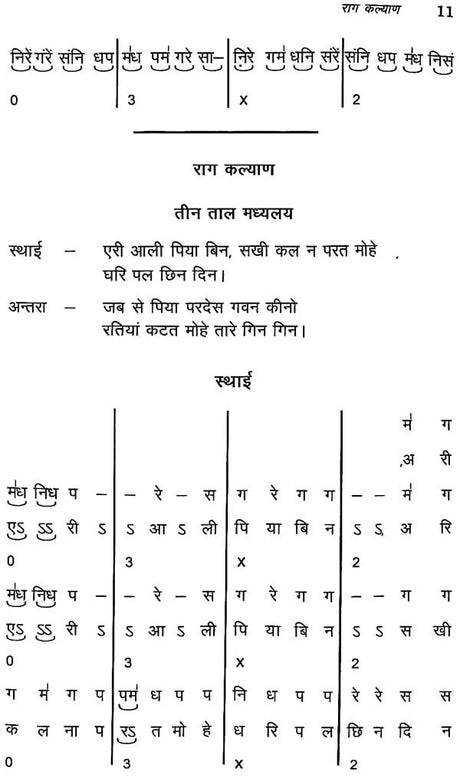 राग कल्याण 11
निरें गंरें संनि धप | म॑ध पम॑ गरे सा– | नि़रे गम॑ धनि संरें | संनि धप म॑ध निसं
0 3 x 2
राग कल्याण
तीन ताल मध्यलय
स्थाई – एरी आली पिया बिन, सखी कल न परत मोहे
घरि पल छिन दिन।
अन्तरा – जब से पिया परदेस गवन कीनो
रतियां कटत मोहे तारे गिन गिन।
स्थाई
म॑ ग
,अ री
म॑ध निध प – | – रे – स | ग रे ग ग | – – म॑ ग
एऽ ऽऽ री ऽ | ऽ आ ऽ ली | पि या बि न | ऽ ऽ, अ रि
0 3 x 2
म॑ध निध प – | – रे – स | ग रे ग ग | – – ग ग
एऽ ऽऽ री ऽ | ऽ आ ऽ ली | पि या बि न | ऽ ऽ स खी
0 3 x 2
ग म॑ ग प | पम॑ ध प प | नि ध प प | रे रे स स
क ल ना प | रऽ त मो हे | ध रि प ल | छि न दि न
0 3 x 2